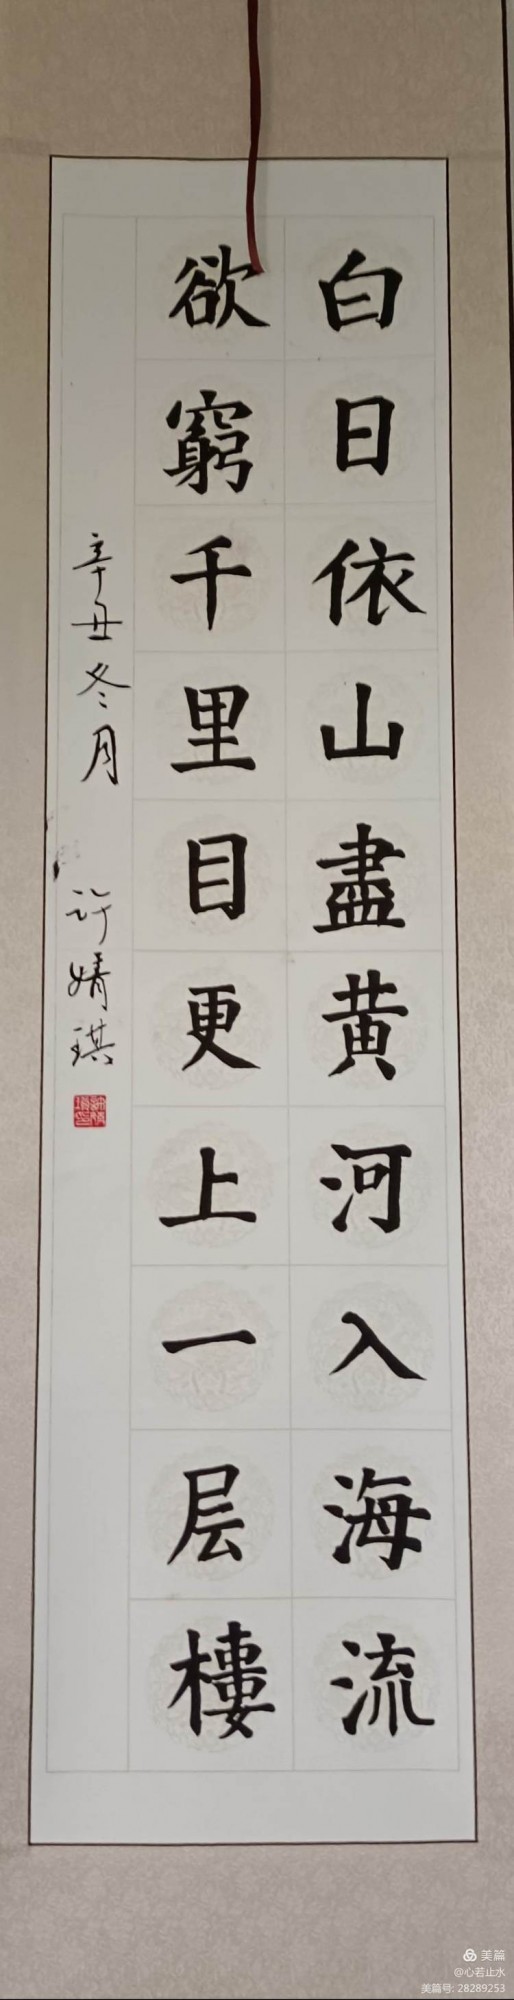 白日依山盡黄河入海流
欲窮千里目更上一层樓
辛丑冬月 许婧琪
美篇
@心若止水
美篇号: 28289253